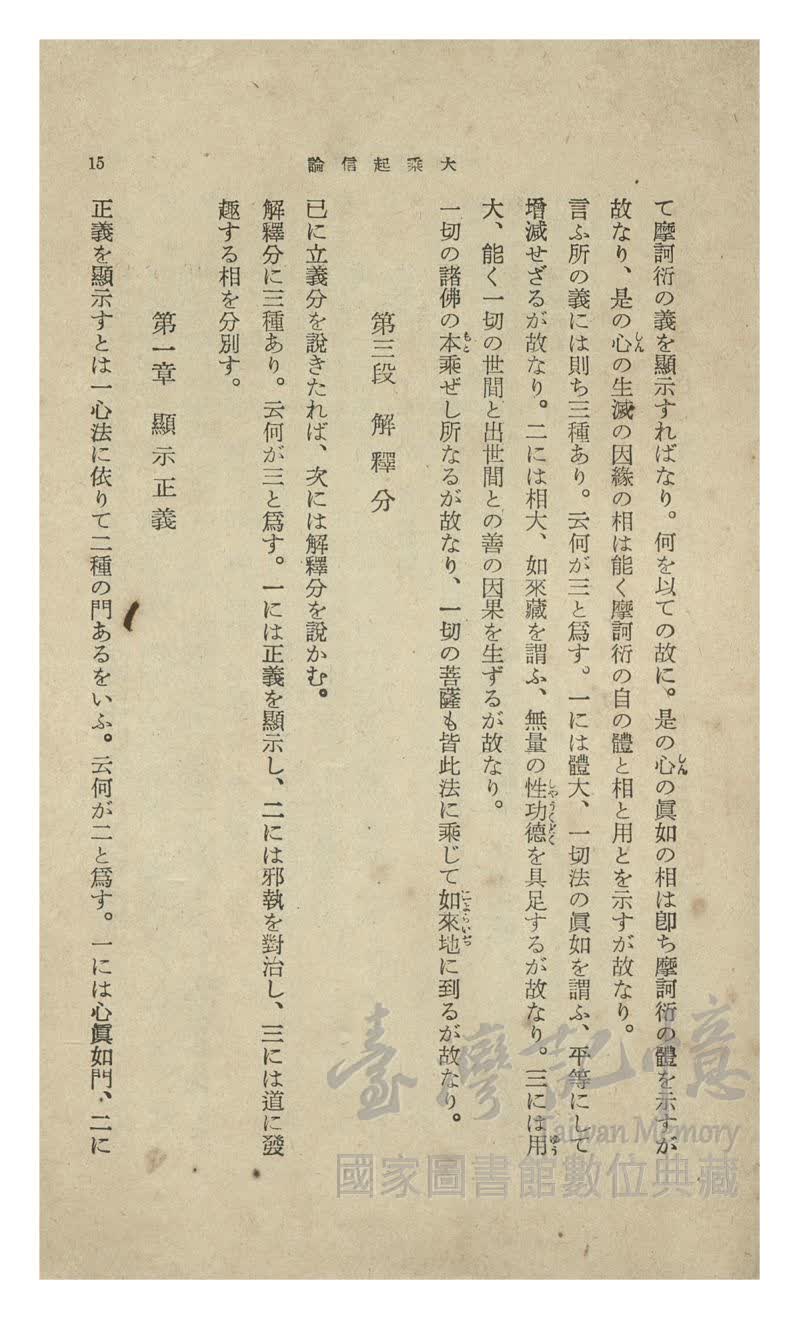 大乘起信論
15
て摩訶衍の義を顯示すればなり。何を以ての故に。是の心の眞如の相は卽ち摩訶衍の體を示すが
故なり、是の心の生滅の因緣の相は能く摩訶衍の自の體と相と用とを示すが故なり。
言ふ所の義には則ち三種あり。云何が三と爲す。一には體大、一切法の眞如を謂ふ、平等にして
增減せざるが故なり。二には相大、如來藏を謂ふ、無量の性功德を具足するが故なり。三には用
大、能く一切の世間と出世間との善の因果を生ずるが故なり。
一切の諸佛の本乘ぜし所なるが故なり、一切の菩薩も皆此法に乘じて如來地に到るが故なり。
第三段 解釋分
已に立義分を說きたれば、次には解釋分を說かむ。
解釋分に三種あり。云何が三と爲す。一には正義を顯示し、二には邪執を對治し、三には道に發
趣する相を分別す。
第一章 顯示正義
正義を顯示すとは一心法に依りて二種の門あるをいふ。云何が二と爲す。一には心眞如門、二に
臺灣記憶
Taiwan Memory
國家圖書館數位典藏